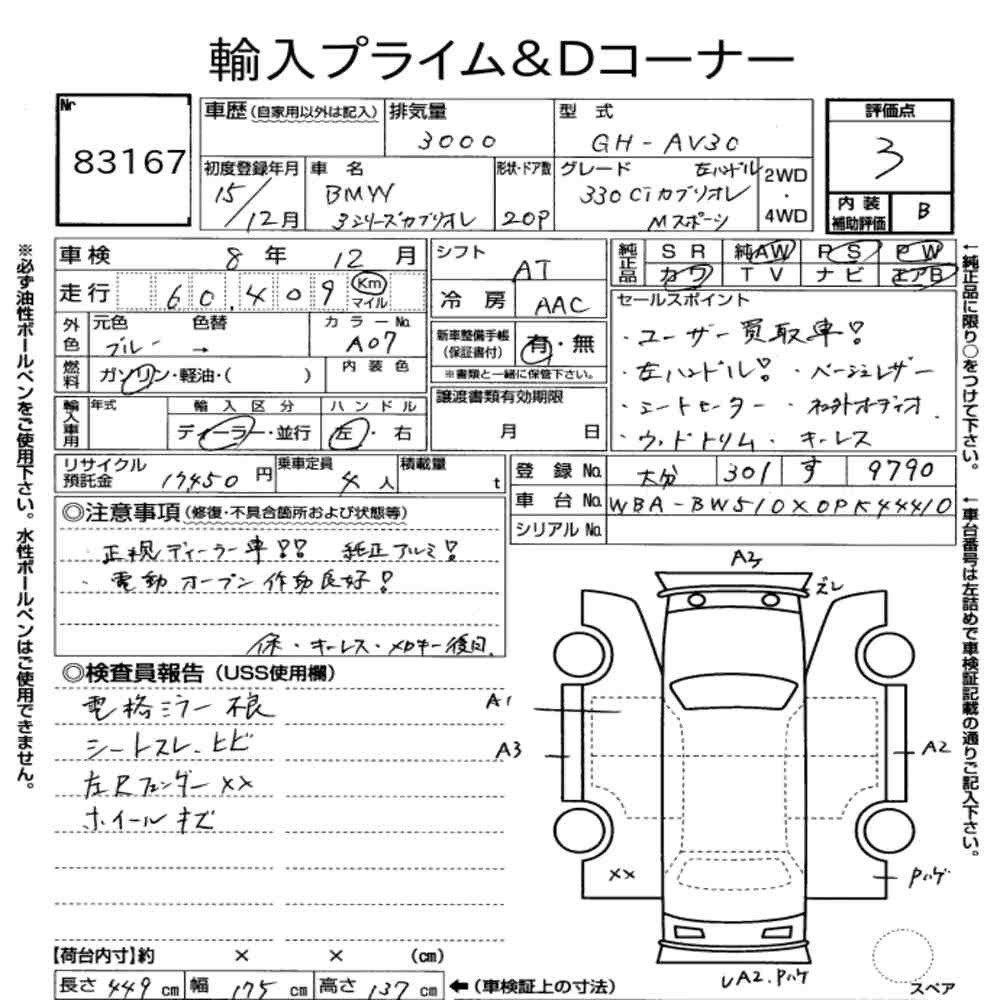 輸入プライム&Dコーナー
Nr
83167
車歴 (自家用以外は記入)
排気量
3000
型式
GH-AV30
評価点
3
初度登録年月
15/12月
車名
BMW
3シリーズカブリオレ
形状・ドア数
2OP
グレード 左ハンドル
330Ciカブリオレ
Mスポーツ
2WD
・
4WD
内装
補助評価
B
車検 8年 12月
走行 60,409 Km マイル
外色
元色 色替
ブルー →
カラーNo.
A07
燃料
ガソリン・軽油・( )
内装色
輸入車用
年式
輸入区分
ディーラー・並行
ハンドル
左・右
シフト
AT
冷房 AAC
新車整備手帳
(保証書付)
有・無
※書類と一緒に保管下さい。
譲渡書類有効期限
月 日
純正品
SR 純AW PS PW
カワ TV ナビ エアB
セールスポイント
・ユーザー買取車!
・左ハンドル! ・ベージュレザー
・シートヒーター ・社外オーディオ
・ウッドトリム ・キーレス
リサイクル
預託金
17450円
乗車定員
4人
積載量
t
登録No. 大分 301 す 9790
車台No. WBA-BW510X0PK44410
シリアルNo.
◎注意事項(修復・不具合箇所および状態等)
・正規ディーラー車!! 純正アルミ!
・電動オープン作動良好!
保・キーレス・メロキー後日
◎検査員報告(USS使用欄)
電格ミラー不良
シートスレ、ヒビ
左Rフェンダー××
ホイールキズ
A3
ズレ
A1
A3
A2
××
Pハゲ
UA2.Pハゲ
スペア
【荷台内寸】約 × × (cm)
長さ 449cm 幅 175cm 高さ 137cm ←(車検証上の寸法)
※必ず油性ボールペンをご使用下さい。水性ボールペンはご使用できません。
←純正品に限り○をつけて下さい。
←車台番号は左詰めで車検証記載の通りご記入下さい。